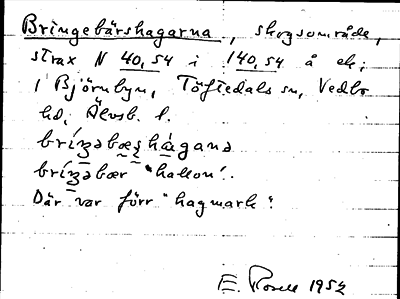 Bringebärshagarna, skogsområde,
strax N 40,54 i 140,54 å ek;
i Björnbyn, Töftedals sn, Vedbo
hd, Älvsb. l.
bríʒəbæʂhàganə
bríʒəbær "hallon".
Där var förr "hagmark".
E. Rosell 1952